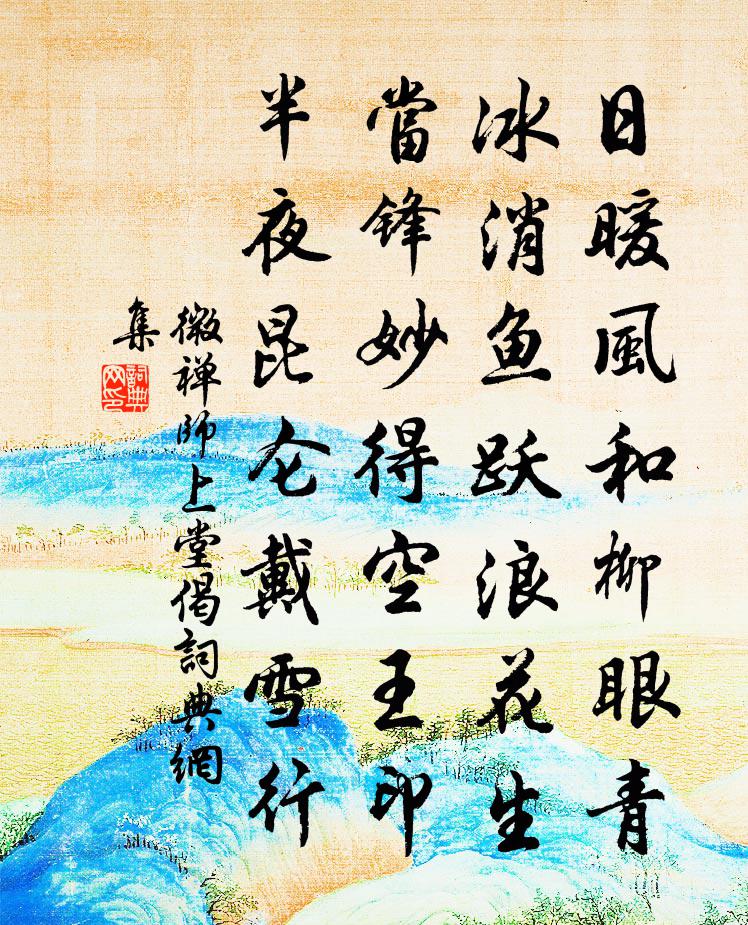 日暖風和柳眼青
冰消鱼跃浪花生
當鋒妙得空王印
半夜昆仑戴雪行
微禅師上堂偈詞典網
集
詞典
网印